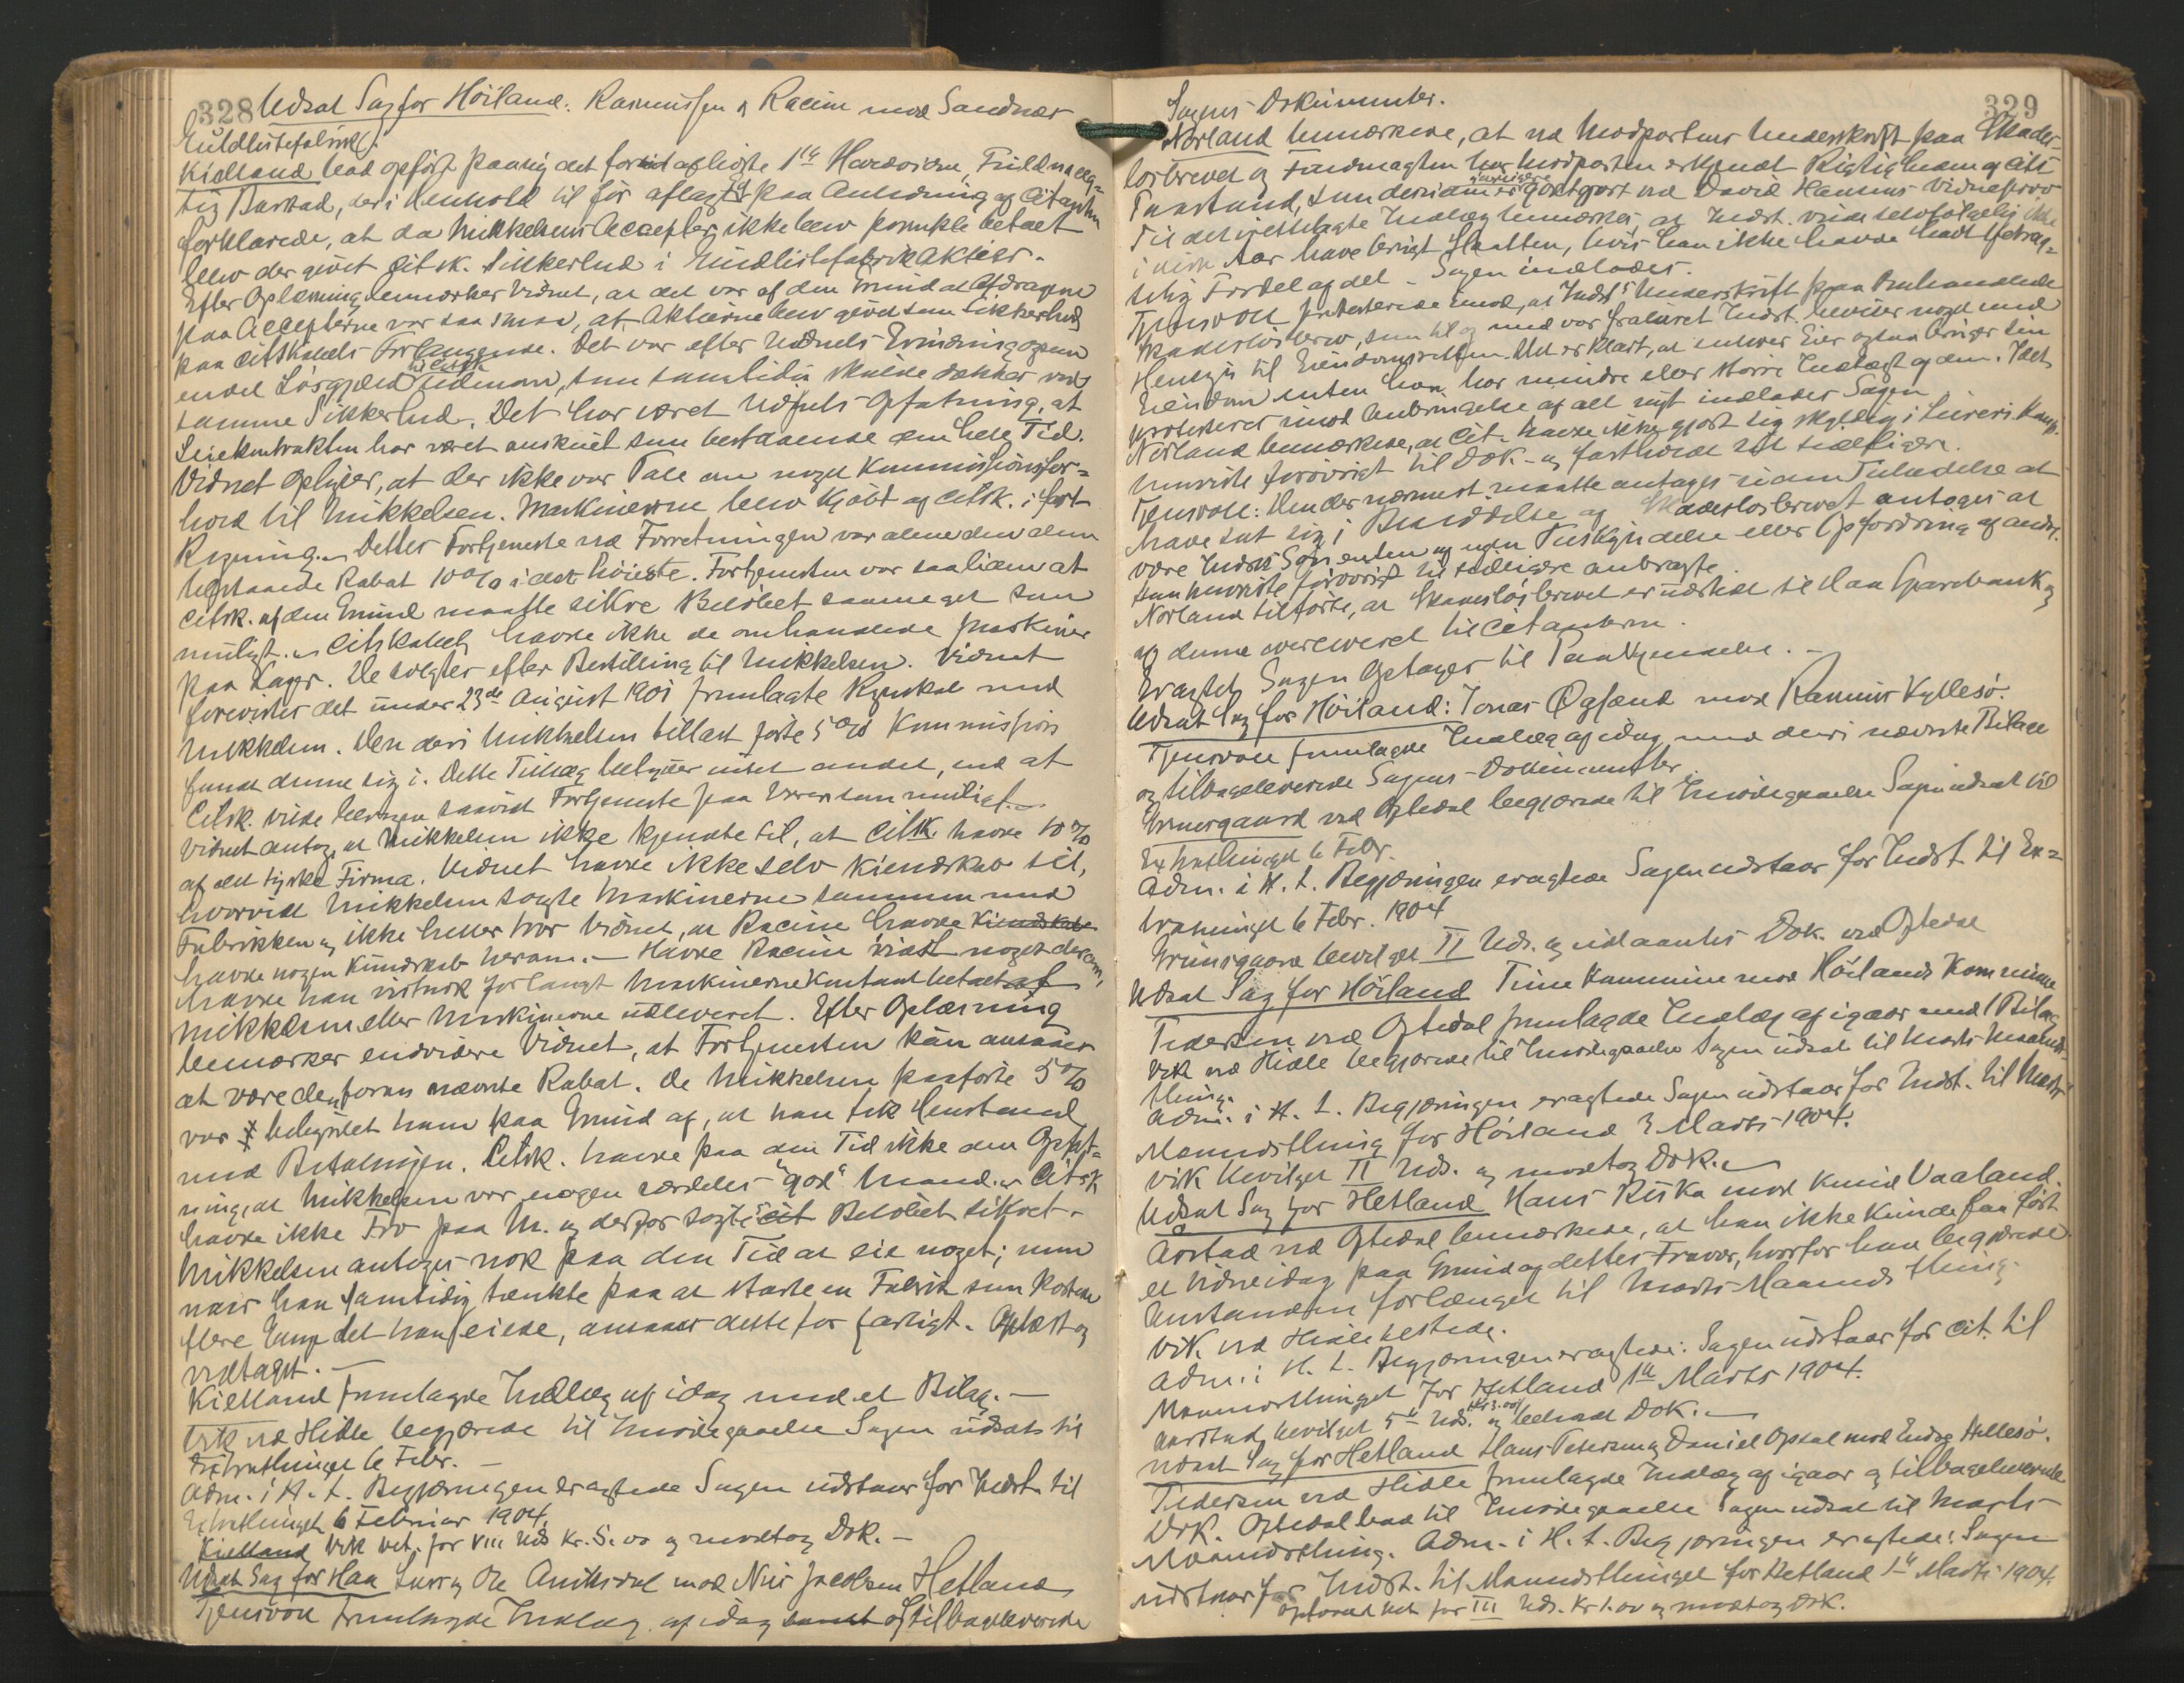 328 Udsat Sag for Höiland: Rasmussen & Racine mod Sandnæs
Guldlistefabrik.
Kielland lod opføre paany det forud afhørte 1ste Hovedvidne, Fuldmæg-
tig Barstad, der i Henhold til før aflagt Ed paa Anledning af Citanten
forklarede, at da Mikkelsens Accepter ikke blev prompte betalt
blev der givet Citsk. Sikkerhed i Guldlistefabrikaktier.
Efter Oplæsning bemærker Vidnet, at det var af den Grund at Afdragene
paa Accepterne var saa smaa, at Aktierne blev givet som Sikkerhed
paa Citskabets Forlangende. Det var efter Vidnets Erindring ogsaa
endel Løsgjæld til Citsk. udenom, som samtidig skulde dækkes ved
samme Sikkerhed. Det har været Vidnets Opfatning, at
Leiekontrakten har været anskuet som bestaaende den hele Tid.
Vidnet oplyser, at der ikke var Tale om noget Kommissionsfor-
hold til Mikkelsen. Maskinerne blev kjøbt af Citsk. i fast
Regning. Dettes Fortjeneste ved Forretningen var alene den alm
bestaaende Rabat 10% i det høieste. Fortjenesten var saa liden at
Citsk. af den Grund maatte sikre Beløbet saameget som
muligt. Citskabet havde ikke de omhandlede Maskiner
paa Lager. De solgtes efter Bestilling til Mikkelsen. Vidnet
forevistes det under 23de August 1901 fremlagte Regnskab med
Mikkelsen. Den deri Mikkelsen tillast førte 5% Kommission
fandt denne sig i. Dette Tillæg betyder intet andet, end at
Citsk. vilde beregne saavidt Fortjeneste paa Varen som muligt.
Vidnet antog, at Mikkelsen ikke kjendte til, at Citsk. havde 10%
af det tyske Firma. Vidnet havde ikke selv Kjendskab til,
hvorvidt Mikkelsen solgte Maskinerne sammen med
Fabrikken og ikke heller tror Vidnet, at Racine havde Kjendskab
havde nogen Kundskab herom. — Havde Racine vidst noget derom,
havde han vistnok forlangt Maskinerne kontant betalt af
Mikkelsen eller Maskinerne udleveret. Efter Oplæsning
bemærker endvidere Vidnet, at Fortjenesten kun ansaaes
at være den foran nævnte Rabat. De Mikkelsen paaførte 5%
var beregnet ham paa Grund af, at han fik Henstand
med Betalingen. Citsk. havde paa den Tid ikke den Opfat-
ning, at Mikkelsen var nogen særdeles "god" Mand. Citsk
havde ikke Tro paa M. og derfor søgtes Beløbet sikret.
Mikkelsen antoges nok paa den Tid at eie noget; men
naar han samtidig tænkte paa at starte en Fabrik som kostede
flere Gange det han eiede, ansaaes dette for farligt. Oplæst og
vedtaget. —
Kielland fremlagde Indlæg af idag med et Bilag. —
Vik ved Hidle begjærede til Imødegaaelse Sagen udsat til
Extrathinget 6 Febr. —
Adm. i H. t. Begjæringen eragtede Sagen udstaar for Indst. til
Extrathinget 6 Februar 1904.
Kielland Vik bet. for VIII Uds. Kr. 5.00 og modtog Dok. —
Udsat Sag for Haa Lars og Ole Aniksdal mod Nils Jacobsen Hetland
Tjensvoll fremlagde Indlæg af idag samt og tilbageleverede
329
Sagens Dokumenter.
Norland bemærkede, at ved Modpartens Underskrift paa Skades-
løsbrevet og Fuldmagten har Modparten erkjendt Rigtigheden af Cits
Paastand, som desuden er yderligere godtgjort ved David Hannas Vidneprov
Til det fremlagte Indlæg bemærkes at Indst. vilde selvfølgelig ikke
i disse Aar have bragt Skatten, hvis han ikke havde havt Udbyt-
telig Fordel af det. Sagen indlades.
Tjensvoll protesterede imod, at Indst's Underskrift paa Omhandlede
Skadesløsbrev, som til og med var fralurt Indst. beviser noget med
Hensyn til Eiendomsretten. Det er klart, at enhver Eier ogsaa bruger sin
Eiendom enten han har mindre eller større Indtægt af den. Idet
protesteres imod Anbringelse af alt nyt indlades Sagen
Norland bemærkede, at Cit. havde ikke gjort sig skyldig i Lureri. Han
henviste forøvrigt til Dok. og fastholdt sit tidligere.
Tjensvoll: Den der nærmest maatte antages uden Tilladelse at
have sat sig i Besiddelse af Skadesløsbrevet antages at
være Indst's Søn enten af egen Tilskyndelse eller Opfordring af andre.
Han henviste forøvrigt til tidligere anbragte.
Norland tilførte, at Skadesløsbrevet er udstedt til Haa Sparebank og
af denne overleveret til Citanterne.
Eragtet Sagen Optages til Paakjendelse. —
Udsat Sag for Höiland: Jonas Øglænd mod Rasmus Kyllesø.
Tjensvoll fremlagde Indlæg af idag med deri nævnte Bilage
og tilbageleverede Sagens Dokumenter.
Grunsgaard ved Oftedal begjærede til Imødegaaelse Sagen udsat til
Extrathinget 6 Febr.
Adm. i H. t. Begjæringen eragtede Sagen udstaar for Indst. til Ex-
trathinget 6 Febr. 1904
Grunsgaard bevilget II Uds. og udlaantes Dok. ved Oftedal
Udsat Sag for Höiland Time Kommune mod Höilands Kommune
Pedersen ved Oftedal fremlagde Indlæg af igaar med 1 Bilag
Vik ved Hidle begjærede til Imødegaaelse Sagen udsat til Marts Maaneds-
thing.
Adm. i H. t. Begjæringen eragtede Sagen udstaar for Indst. til Marts
Maanedsthing for Höiland 3 Marts 1904.
Vik bevilget II Uds. og modtog Dok.
Udsat Sag for Hetland Hans Riska mod Knud Vaaland.
Aarstad ved Oftedal bemærkede, at han ikke kunde faa ført
et Vidne idag paa Grund af dettes Fravær, hvorfor han begjærede
Anstanden forlænget til Marts-Maanedsthing.
Vik ved Hidle bestred.
Adm. i H. t. Begjæringen eragtede: Sagen udstaar for Cit. til
Maanedsthinget for Hetland 1ste Marts 1904.
Aarstad bevilget 5te Uds. Kr 3.00 og beholdt Dok. —
Udsat Sag for Hetland Hans Petersen og Daniel Opsal mod Endre Hellesø.
Pedersen ved Hidle fremlagde Indlæg af igaar og tilbageleverede
Dok. Oftedal bad til Imødegaaelse Sagen udsat til Marts
Maanedsthing. Adm. i H. t. Begjæringen eragtede: Sagen
udstaar for Indst. til Maanedsthinget for Hetland 1ste Marts 1904.
Oftedal bet. for III Uds. Kr 1.00 og modtog Dok.